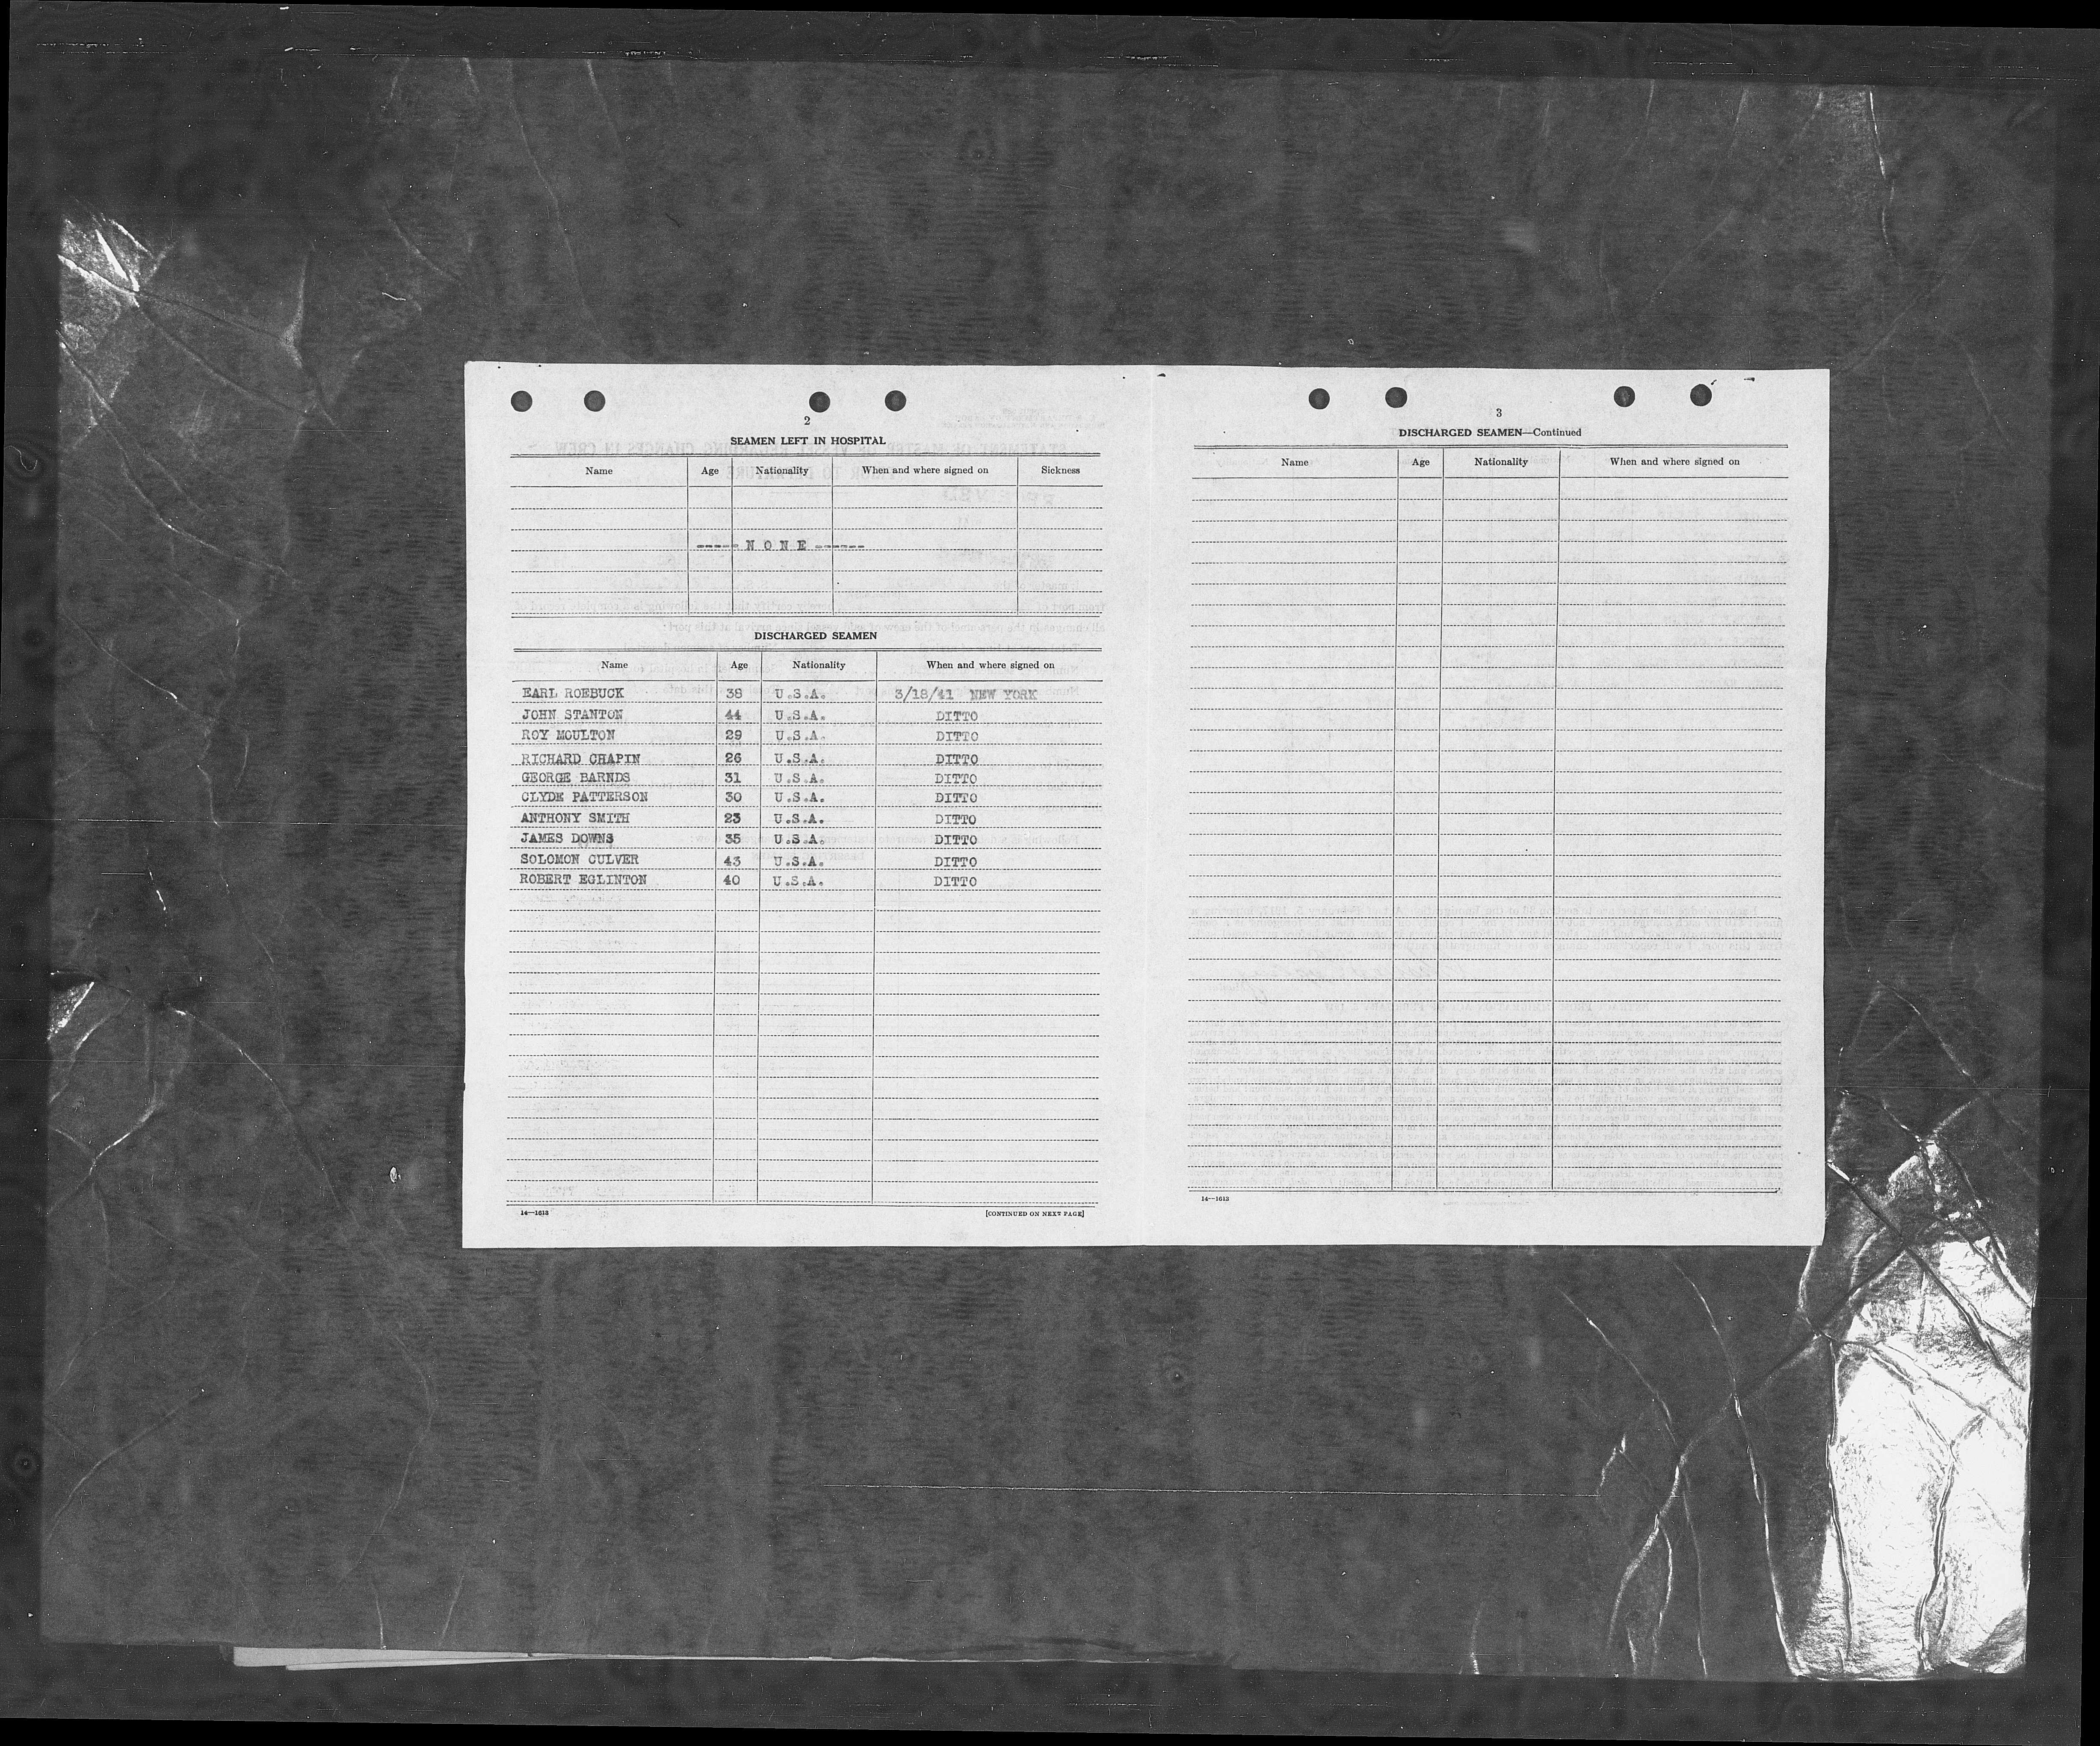 2
SEAMEN LEFT IN HOSPITAL
Name Age Nationality When and where signed on Sickness
-----N O N E------
DISCHARGED SEAMEN
Name Age Nationality When and where signed on
EARL ROEBUCK 38 U.S.A. 3/18/41 NEW YORK
JOHN STANTON 44 U.S.A. DITTO
ROY MOULTON 29 U.S.A. DITTO
RICHARD CHAPIN 26 U.S.A. DITTO
GEORGE BARNDS 31 U.S.A. DITTO
CLYDE PATTERSON 30 U.S.A. DITTO
ANTHONY SMITH 23 U.S.A. DITTO
JAMES DOWNS 35 U.S.A. DITTO
SOLOMON CULVER 43 U.S.A. DITTO
ROBERT EGLINTON 40 U.S.A. DITTO
14—1613 [CONTINUED ON NEXT PAGE]
3
DISCHARGED SEAMEN—Continued
Name Age Nationality When and where signed on
14—1613